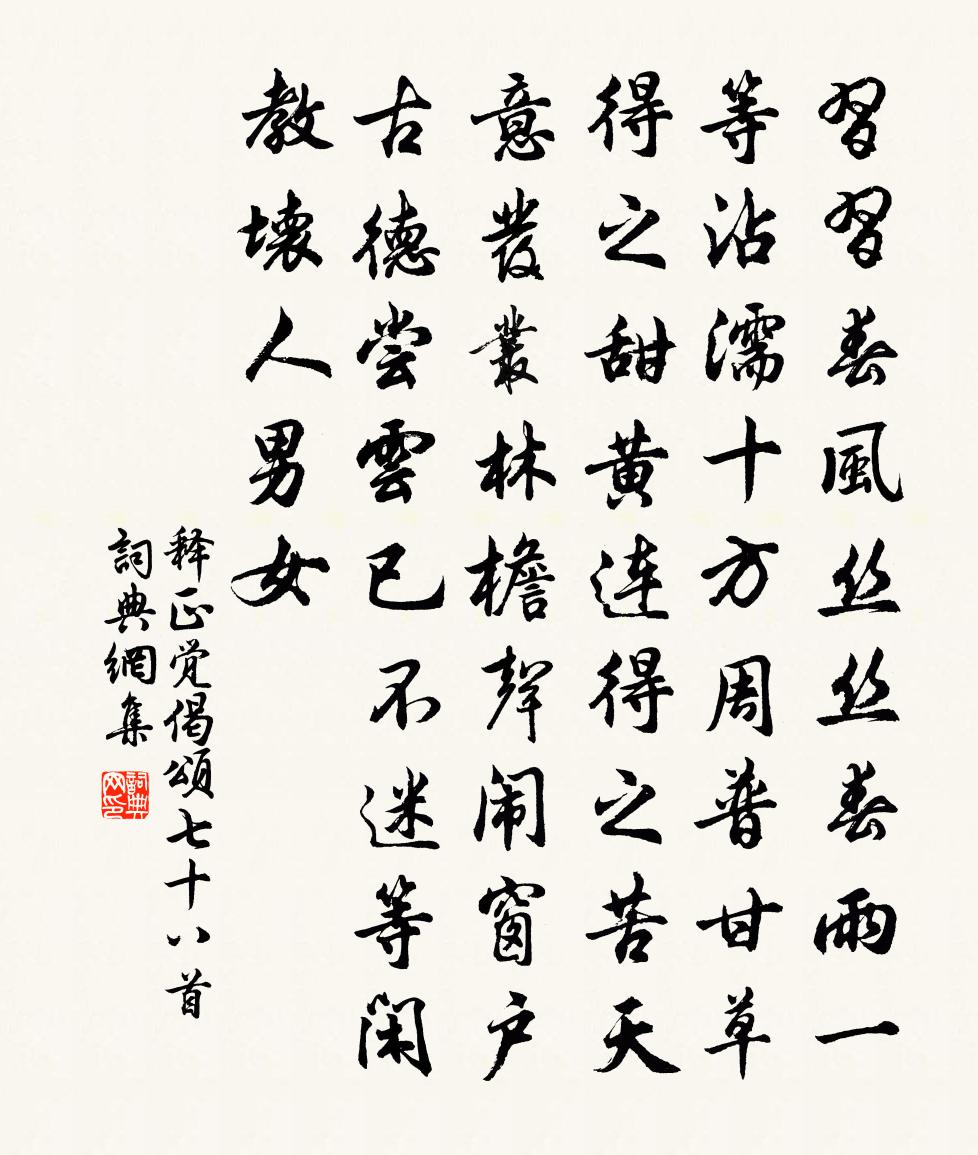 習習春風丝丝春雨一
等沾濡十方周普甘草
得之甜黄連得之苦天
意發叢林檐聲闹窗户
古德尝雲已不迷等闲
教壞人男女
释正觉偈頌七十八首
詞典網集
詞典网印